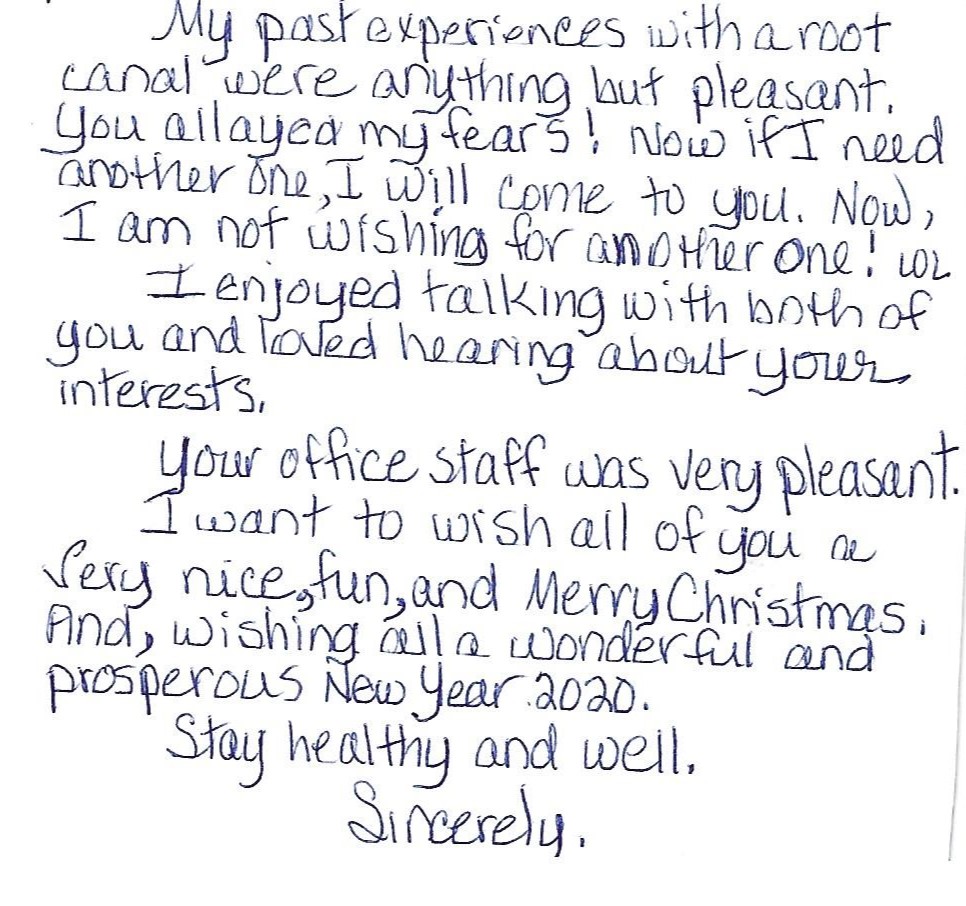 My past experiences with a root
canal were anything but pleasant.
You allayed my fears! Now if I need
another one, I will come to you. Now,
I am not wishing for another one! LOL
I enjoyed talking with both of
you and loved hearing about your
interests.
Your office staff was very pleasant.
I want to wish all of you a
Very nice, fun, and Merry Christmas.
And, wishing all a wonderful and
prosperous New Year 2020.
Stay healthy and well.
Sincerely.